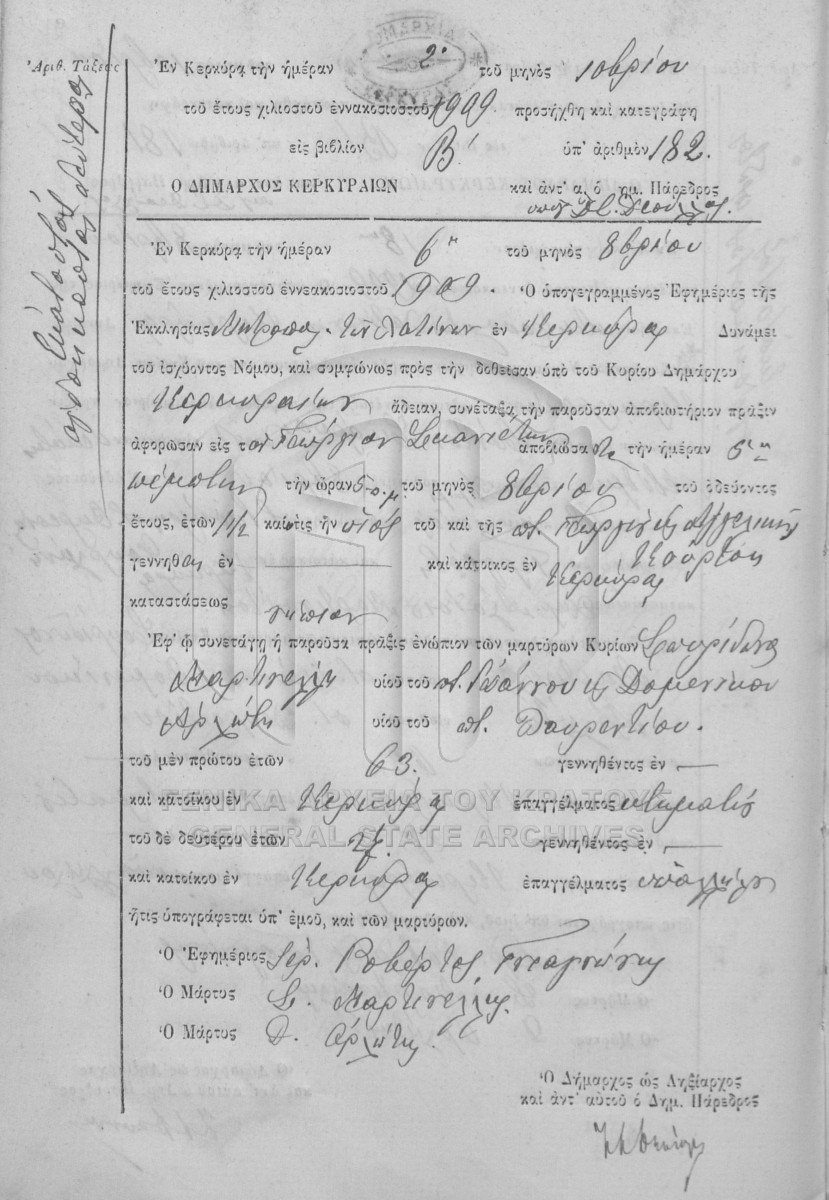 ΔΗΜΑΡΧΙΑ ΚΕΡΚΥΡΑΣ
Ἀριθ. Τάξεως
Ἐν Κερκύρᾳ τὴν ἡμέραν 2α τοῦ μηνὸς 10βρίου
τοῦ ἔτους χιλιοστοῦ ἐννακοσιοστοῦ 1909 προσήχθη καὶ κατεγράφη
εἰς βιβλίον Β' ὑπ' ἀριθμὸν 182.
Ο ΔΗΜΑΡΧΟΣ ΚΕΡΚΥΡΑΙΩΝ καὶ ἀντ' α. ὁ δημ. Πάρεδρος
Ἐν Κερκύρᾳ τὴν ἡμέραν 6η τοῦ μηνὸς 8βρίου
τοῦ ἔτους χιλιοστοῦ ἐννεακοσιοστοῦ 1909. Ὁ ὑπογεγραμμένος Ἐφημέριος τῆς
Ἐκκλησίας Μητροπόλ. τῶν Λατίνων ἐν Κερκύρᾳ Δυνάμει
τοῦ ἰσχύοντος Νόμου, καὶ συμφώνως πρὸς τὴν δοθεῖσαν ὑπὸ τοῦ Κυρίου Δημάρχου
Κερκυραίων ἄδειαν, συνέταξα τὴν παροῦσαν ἀποβιωτήριον πρᾶξιν
ἀφορῶσαν εἰς τὸν Γεώργιον ἀποβιώσαντα τὴν ἡμέραν 5η
πέμπτην τὴν ὥραν 5 π.μ. τοῦ μηνὸς 8βρίου τοῦ ὁδεύοντος
ἔτους, ἐτῶν 1 1/2 καὶ ὅστις ἦν υἱὸς τοῦ καὶ τῆς ποτ. Γεωργίου κ Ἀγγελικῆς
Κούρτση
γεννηθεὶς ἐν — καὶ κάτοικος ἐν Κερκύρᾳ
καταστάσεως νήπιον
Ἐφ' ᾧ συνετάγη ἡ παροῦσα πρᾶξις ἐνώπιον τῶν μαρτύρων Κυρίων Σπυρίδωνα
Μαρτινέλλη υἱοῦ τοῦ ποτ. Ἰωάννου κ Δομενίκου
Ἀρλώτη υἱοῦ τοῦ ποτ. Λαυρεντίου.
τοῦ μὲν πρώτου ἐτῶν 63. γεννηθέντος ἐν —
καὶ κατοίκου ἐν Κερκύρᾳ ἐπαγγέλματος κτηματίς
ΓΕΝΙΚΑ ΑΡΧΕΙΑ ΤΟΥ ΚΡΑΤΟΥΣ
GENERAL STATE ARCHIVES
τοῦ δὲ δευτέρου ἐτῶν γεννηθέντος ἐν —
καὶ κατοίκου ἐν Κερκύρᾳ ἐπαγγέλματος ὑπαλλήλου
ἥτις ὑπογράφεται ὑπ' ἐμοῦ, καὶ τῶν μαρτύρων.
Ὁ Ἐφημέριος Ἱερ. Ροβέρτος
Ὁ Μάρτυς Σ. Μαρτινέλλης.
Ὁ Μάρτυς Δ. Ἀρλώτης.
Ὁ Δήμαρχος ὡς Ληξίαρχος
καὶ ἀντ' αὐτοῦ ὁ Δημ. Πάρεδρος